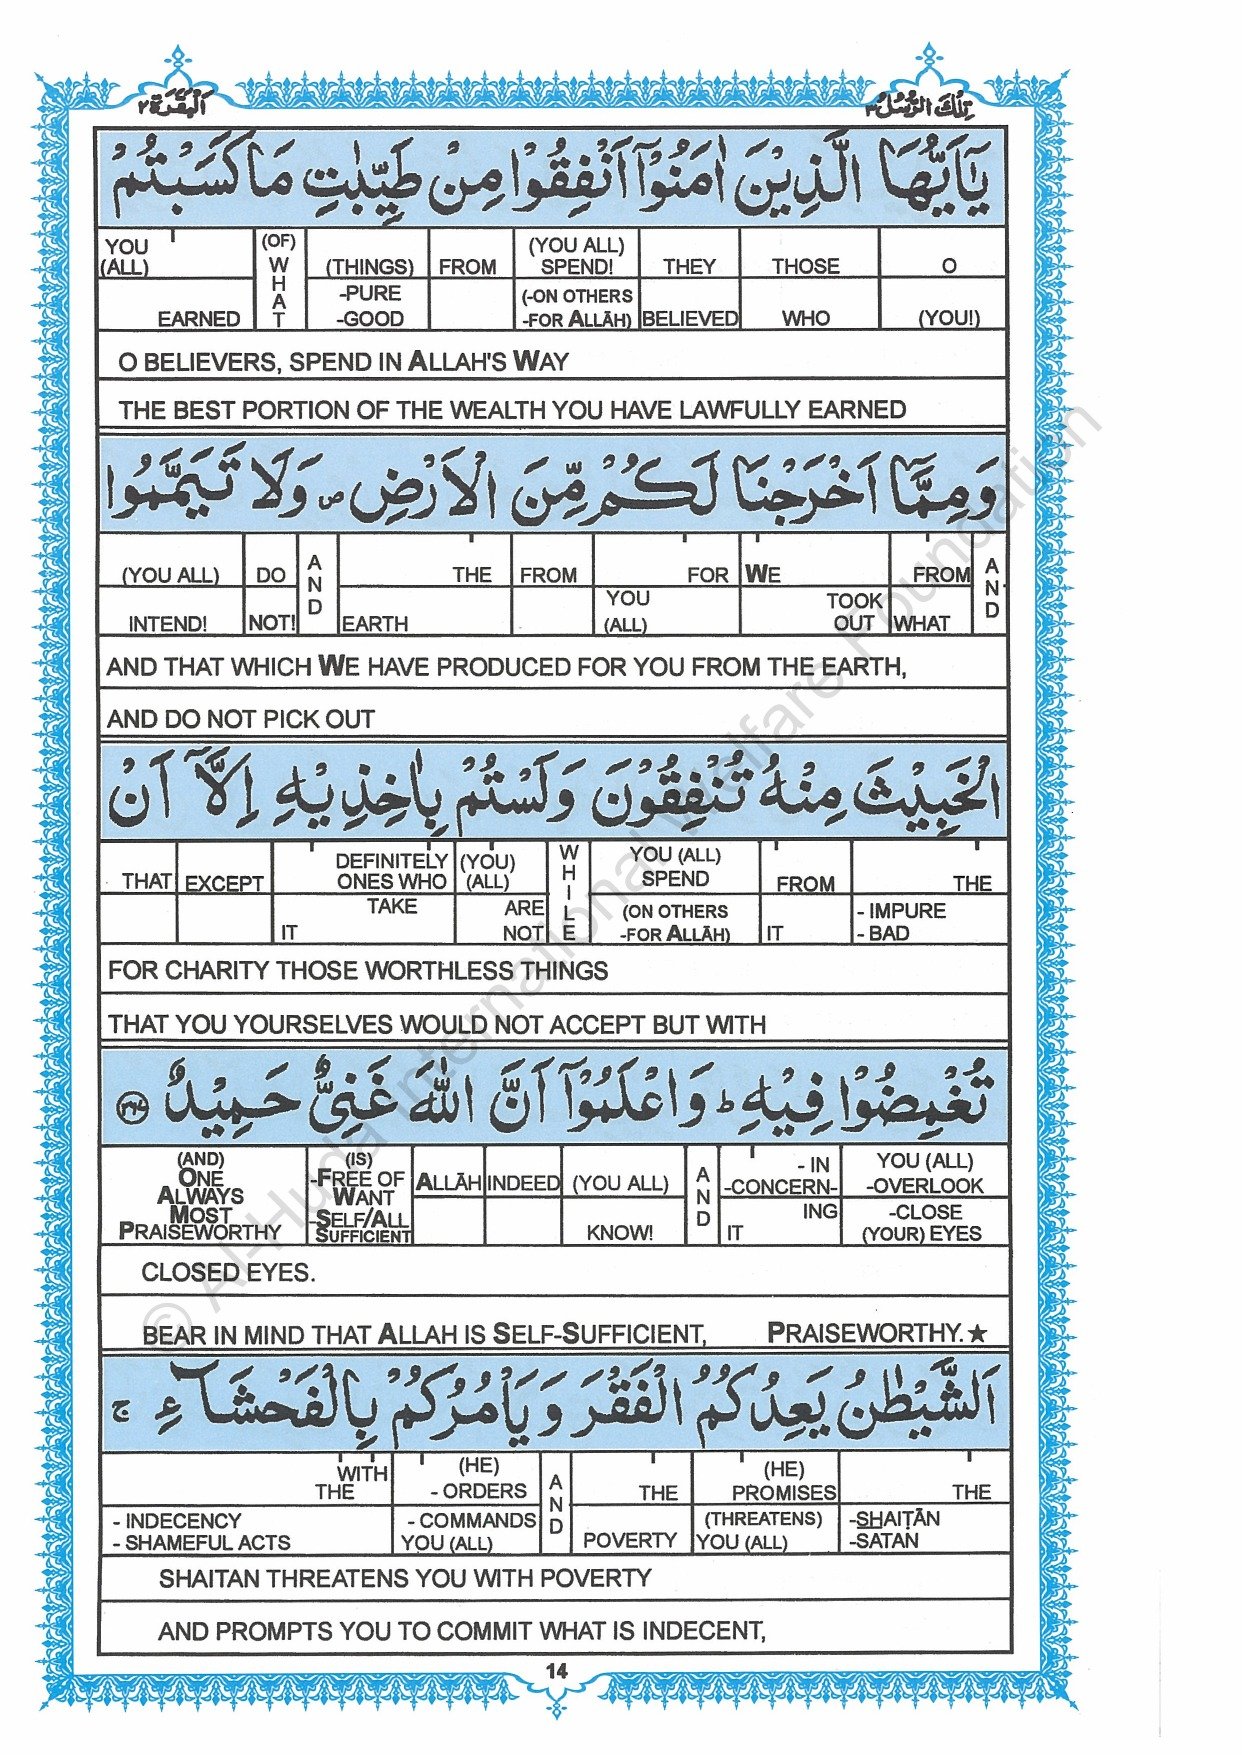 تِلْكَ الرُّسُلُ ٣
اَلْبَقَرَة ٢
يٰۤاَيُّهَا الَّذِيْنَ اٰمَنُوْۤا اَنْفِقُوْا مِنْ طَيِّبٰتِ مَا كَسَبْتُمْ
YOU (ALL) EARNED | (OF) WHAT | (THINGS) -PURE -GOOD | FROM | (YOU ALL) SPEND! (-ON OTHERS -FOR ALLĀH) | THEY BELIEVED | THOSE WHO | O (YOU!)
O BELIEVERS, SPEND IN ALLAH'S WAY
THE BEST PORTION OF THE WEALTH YOU HAVE LAWFULLY EARNED
وَمِمَّاۤ اَخْرَجْنَا لَكُمْ مِّنَ الْاَرْضِ ص وَلَا تَيَمَّمُوا
(YOU ALL) INTEND! | DO NOT! | AND | THE EARTH | FROM | FOR YOU (ALL) | WE TOOK OUT | FROM WHAT | AND
AND THAT WHICH WE HAVE PRODUCED FOR YOU FROM THE EARTH,
AND DO NOT PICK OUT
الْخَبِيْثَ مِنْهُ تُنْفِقُوْنَ وَلَسْتُمْ بِاٰخِذِيْهِ اِلَّاۤ اَنْ
THAT | EXCEPT | DEFINITELY ONES WHO TAKE IT | (YOU) (ALL) ARE NOT | WHILE | YOU (ALL) SPEND (ON OTHERS -FOR ALLĀH) | FROM IT | THE - IMPURE - BAD
FOR CHARITY THOSE WORTHLESS THINGS
THAT YOU YOURSELVES WOULD NOT ACCEPT BUT WITH
تُغْمِضُوْا فِيْهِ ط وَاعْلَمُوْۤا اَنَّ اللّٰهَ غَنِيٌّ حَمِيْدٌ ٢٦٧
(AND) ONE ALWAYS MOST PRAISEWORTHY | (IS) -FREE OF WANT -SELF/ALL SUFFICIENT | ALLĀH | INDEED | (YOU ALL) KNOW! | AND | - IN -CONCERN- ING IT | YOU (ALL) -OVERLOOK -CLOSE (YOUR) EYES
CLOSED EYES.
BEAR IN MIND THAT ALLAH IS SELF-SUFFICIENT, PRAISEWORTHY.★
اَلشَّيْطٰنُ يَعِدُكُمُ الْفَقْرَ وَيَاْمُرُكُمْ بِالْفَحْشَآءِ ج
WITH THE - INDECENCY - SHAMEFUL ACTS | (HE) - ORDERS - COMMANDS YOU (ALL) | AND | THE POVERTY | (HE) PROMISES (THREATENS) YOU (ALL) | THE -SHAIṬĀN -SATAN
SHAITAN THREATENS YOU WITH POVERTY
AND PROMPTS YOU TO COMMIT WHAT IS INDECENT,
14
© Al-Huda International Welfare Foundation